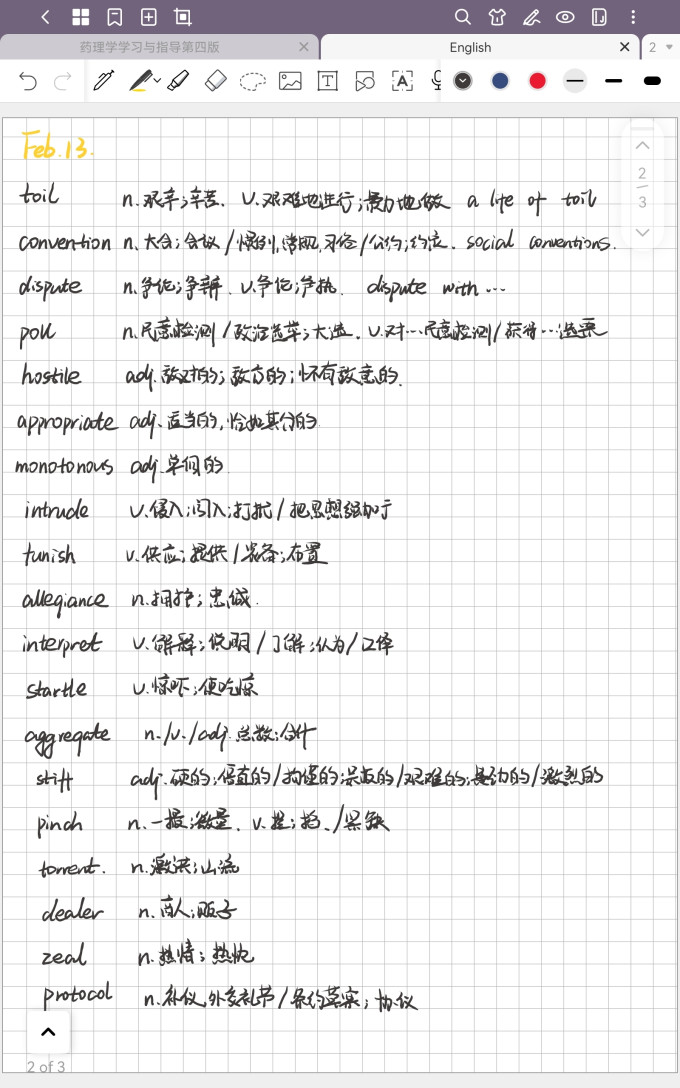 药理学学习与指导第四版
English
2
Feb.13.
2
3
toil n.艰辛;辛苦. v.艰难地进行;费力地做 a life of toil
convention n.大会;会议/惯例,常规,习俗/公约;约定. social conventions.
dispute n.争论;争辩. v.争论;争执. dispute with…
poll n.民意检测/政治选举;大选. v.对…民意检测/获得…选票
hostile adj.敌对的;敌方的;怀有敌意的.
appropriate adj.适当的,恰如其分的
monotonous adj.单调的.
intrude v.侵入;闯入;打扰/把思想强加于
funish v.供应;提供/装备;布置
allegiance n.拥护;忠诚.
interpret v.解释;说明/了解;认为/口译
startle v.惊吓;使吃惊
aggregate n./v./adj.总数;合计
stiff adj.硬的;僵直的/拘谨的;呆板的/艰难的;费劲的/激烈的
pinch n.一撮;微量. v.捏;掐./紧缺
torrent. n.激流;山流
dealer n.商人;贩子
zeal n.热情;热忱
protocol n.礼仪,外交礼节/条约草案;协议
2 of 3